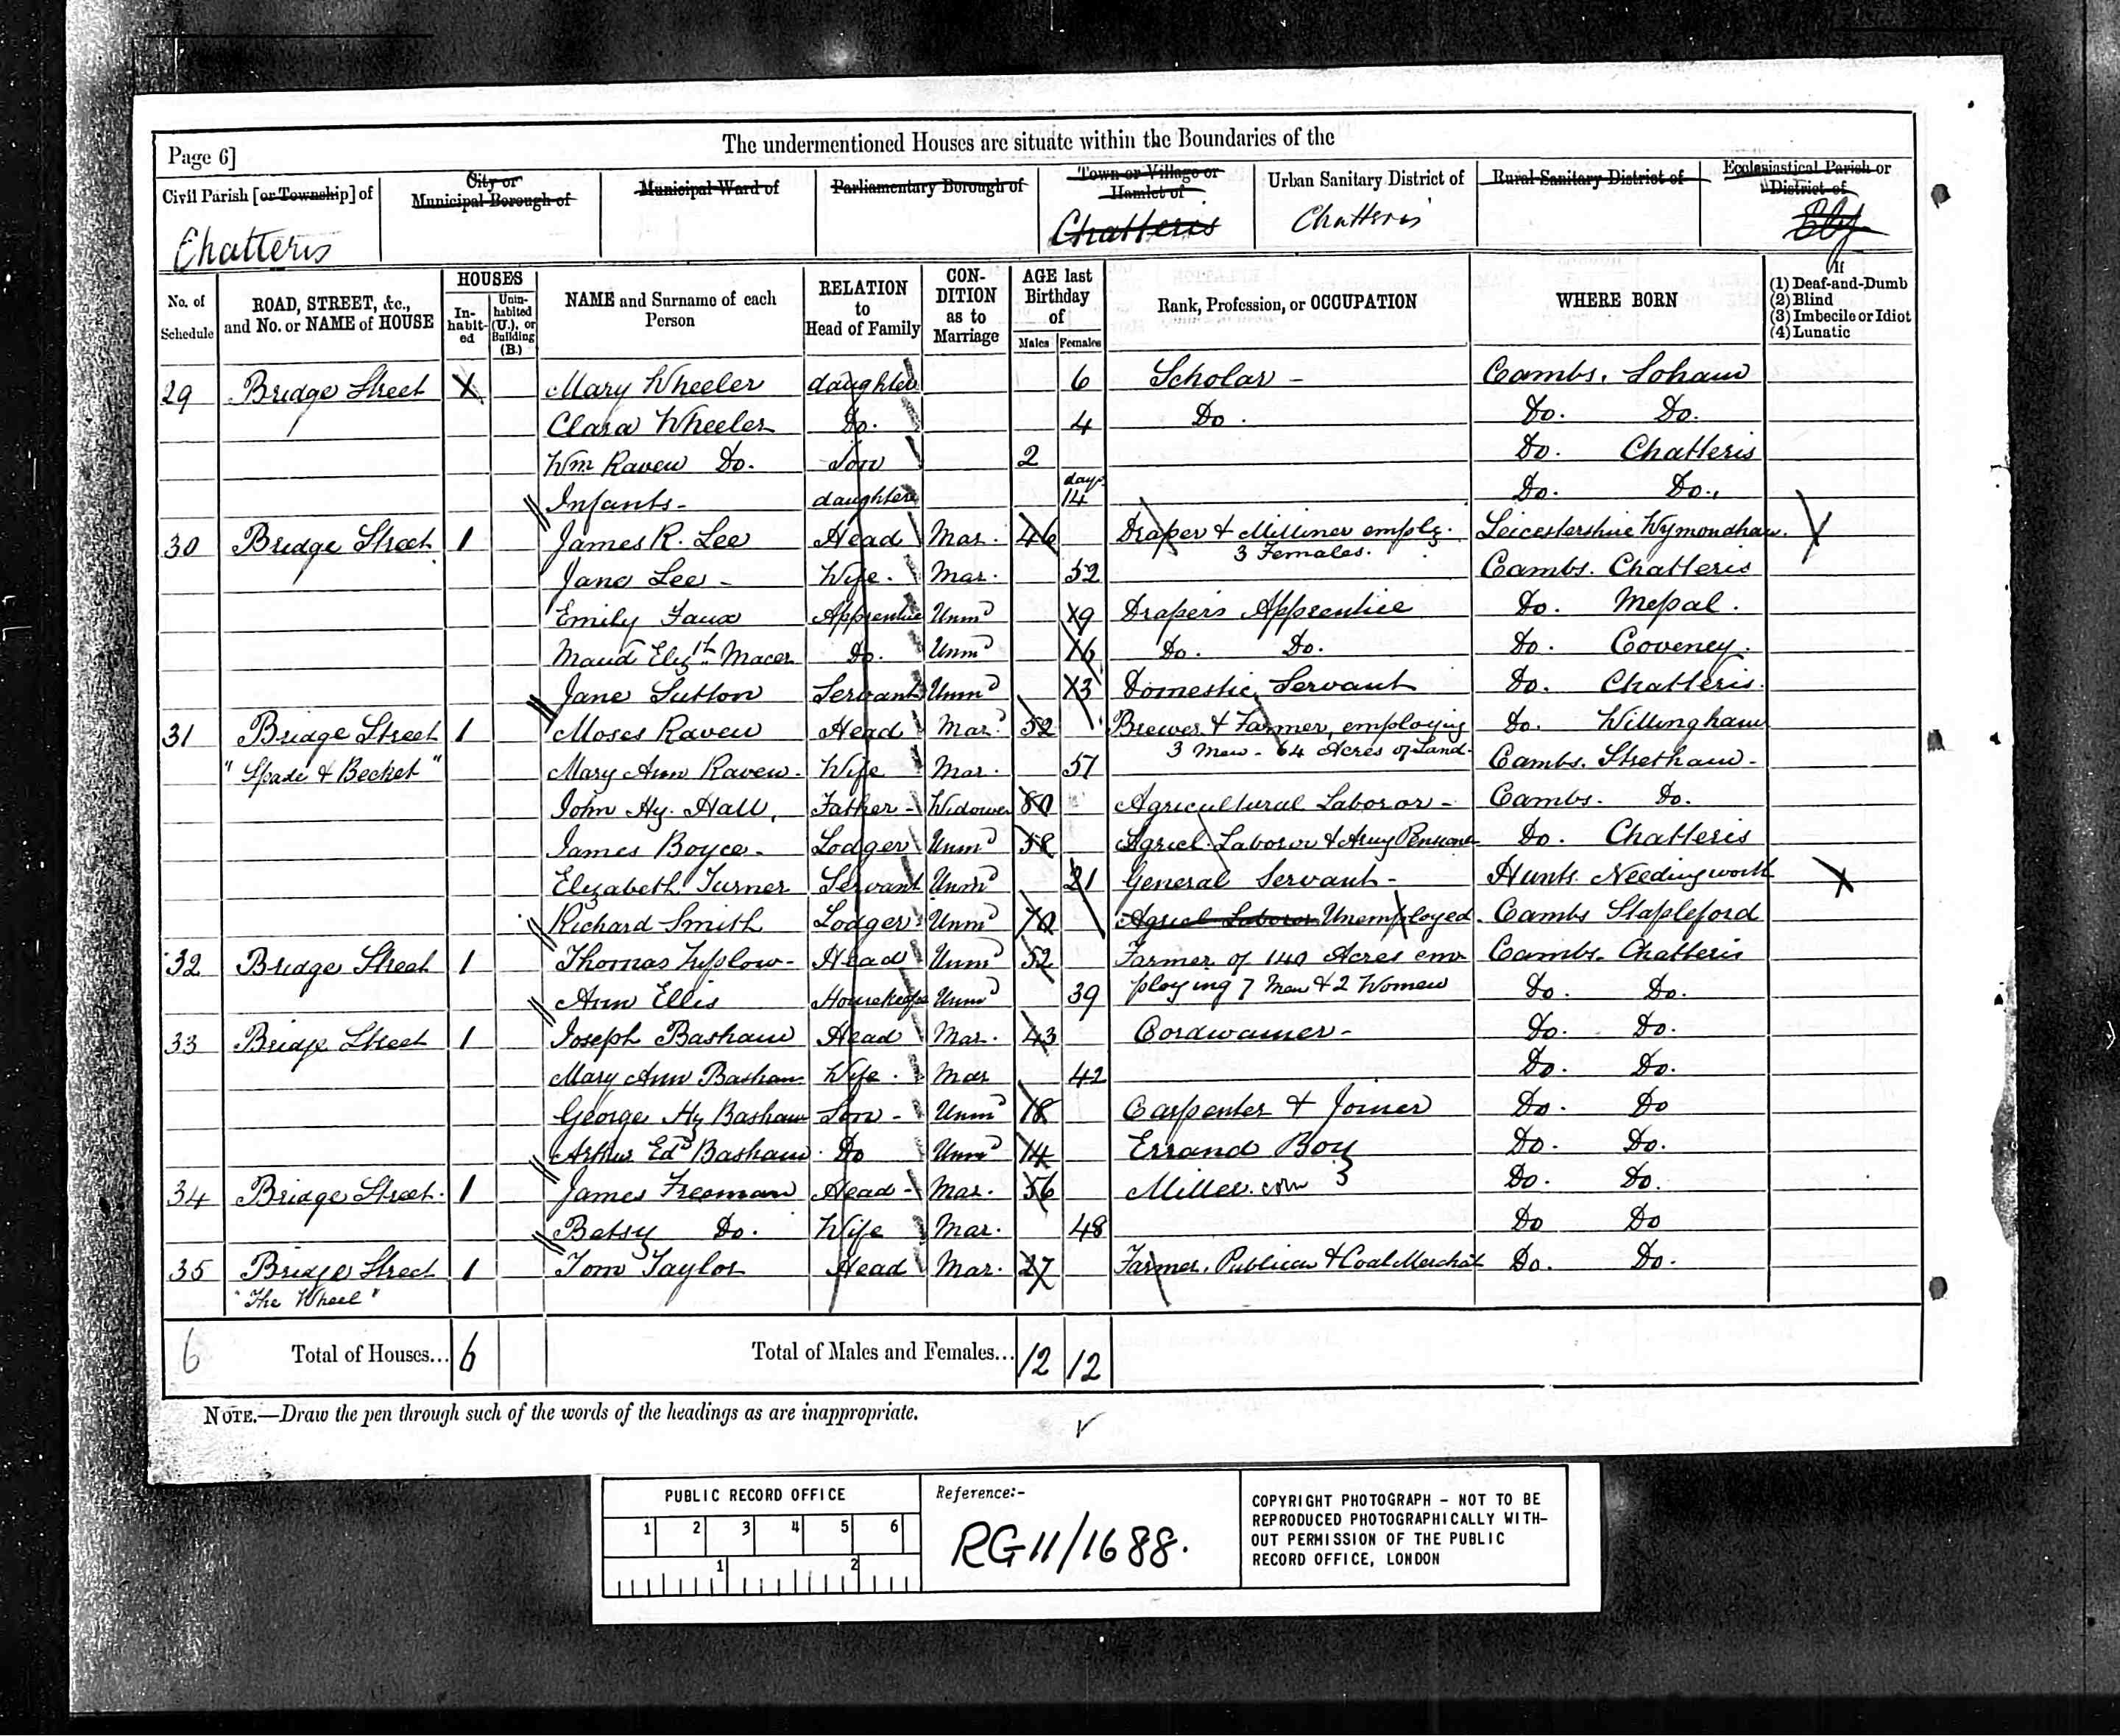 The undermentioned Houses are situate within the Boundaries of the
Page 6]
Civil Parish [or Township] of
City or Municipal Borough of
Municipal Ward of
Parliamentary Borough of
Town or Village or Hamlet of
Urban Sanitary District of
Rural Sanitary District of
Ecclesiastical Parish or District of
Chatteris Chatteris Chatteris Ely
No. of Schedule
ROAD, STREET, &c., and No. or NAME of HOUSE
HOUSES
In-habit-ed
Unin-habited (U.), or Building (B.)
NAME and Surname of each Person
RELATION to Head of Family
CON-DITION as to Marriage
AGE last Birthday of
Males Females
Rank, Profession, or OCCUPATION
WHERE BORN
If
(1) Deaf-and-Dumb
(2) Blind
(3) Imbecile or Idiot
(4) Lunatic
29 Bridge Street X Mary Wheeler daughter 6 Scholar - Cambs. Soham
Clara Wheeler Do. 4 Do. Do. Do.
Wm Raven Do. Son 2 Do. Chatteris
Infants - daughters days 14 Do. Do.
30 Bridge Street 1 James R. Lee Head Mar. 46 Draper & Milliner emplg. Leicestershire Wymondham
3 Females.
Jane Lee - Wife. Mar. 52 Cambs. Chatteris
Emily Faux Apprentice Unmd 19 Drapers Apprentice Do. Mepal.
Maud Elizth Macer Do. Unmd 16 Do. Do. Do. Coveney.
Jane Sutton Servant Unmd 13 Domestic Servant Do. Chatteris.
31 Bridge Street 1 Moses Raven Head Mar. 52 Brewer & Farmer, employing Do. Willingham
3 Men - 64 Acres of Land.
"Spade & Becket" Mary Ann Raven. Wife Mar. 57 Cambs. Stretham -
John Hy. Hall, Father - Widower 80 Agricultural Laboror - Cambs. Do.
James Boyce - Lodger Unmd 58 Agricl. Laboror & Army Pensioner Do. Chatteris
Elizabeth Turner Servant Unmd 21 General Servant - Hunts Needingworth
Richard Smith Lodger Unmd 70 Agricl Laboror Unemployed. Cambs Stapleford
32 Bridge Street 1 Thomas Head Unmd 52 Farmer of 140 Acres em- Cambs. Chatteris
Ann Ellis Housekeeper Unmd 39 ploying 7 Men & 2 Women Do. Do.
33 Bridge Street 1 Joseph Basham Head Mar. 43 Cordwainer - Do. Do.
Mary Ann Basham Wife. Mar 42 Do. Do.
George Hy Basham Son - Unmd 18 Carpenter & Joiner Do. Do
Arthur Edd Basham Do Unmd 14 Errand Boy Do. Do.
34 Bridge Street. 1 James Freeman Head - Mar. 56 Miller. corn 3 Do. Do.
Betsy Do. Wife Mar. 48 Do Do
35 Bridge Street 1 Tom Taylor Head Mar. 27 Farmer, Publican & Coal Merchat Do. Do.
"The Wheel"
6 Total of Houses... 6 Total of Males and Females... 12 12
NOTE.—Draw the pen through such of the words of the headings as are inappropriate.
PUBLIC RECORD OFFICE
1 2 3 4 5 6
1 2
Reference:-
RG11/1688.
COPYRIGHT PHOTOGRAPH - NOT TO BE
REPRODUCED PHOTOGRAPHICALLY WITH-
OUT PERMISSION OF THE PUBLIC
RECORD OFFICE, LONDON